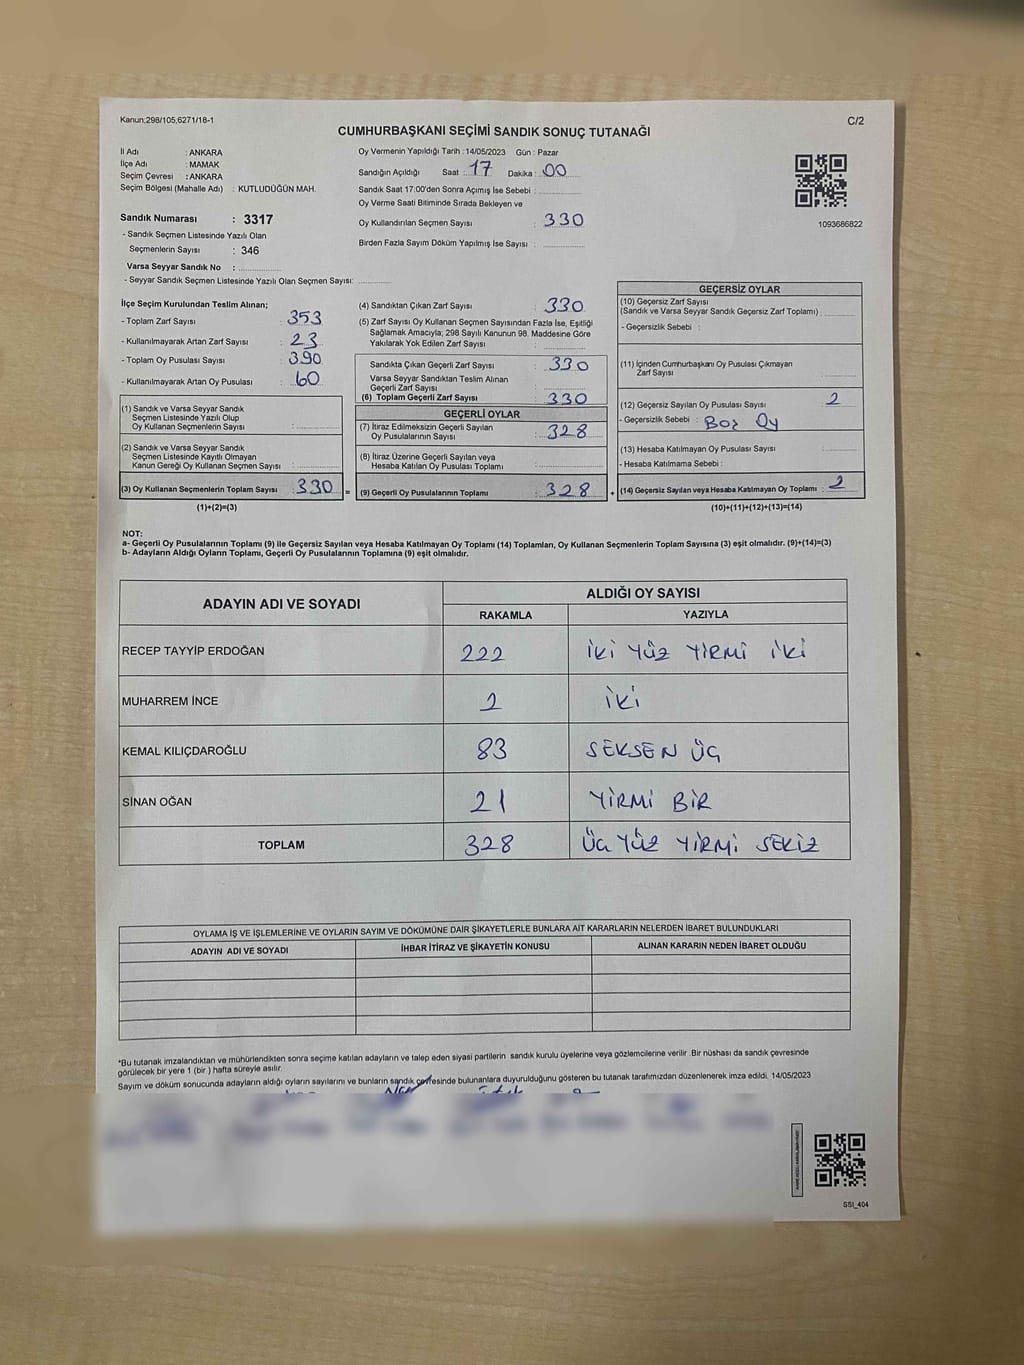 Kanun:298/105,6271/18-1
C/2
CUMHURBAŞKANI SEÇİMİ SANDIK SONUÇ TUTANAĞI
İl Adı : ANKARA
İlçe Adı : MAMAK
Seçim Çevresi : ANKARA
Seçim Bölgesi (Mahalle Adı) : KUTLUDÜĞÜN MAH.
Sandık Numarası : 3317
- Sandık Seçmen Listesinde Yazılı Olan
Seçmenlerin Sayısı : 346
Varsa Seyyar Sandık No :
- Seyyar Sandık Seçmen Listesinde Yazılı Olan Seçmen Sayısı:
Oy Vermenin Yapıldığı Tarih : 14/05/2023 Gün : Pazar
Sandığın Açıldığı Saat : 17 Dakika : 00
Sandık Saat 17:00'den Sonra Açımış İse Sebebi :
Oy Verme Saati Bitiminde Sırada Bekleyen ve
Oy Kullandırılan Seçmen Sayısı : 330
Birden Fazla Sayım Döküm Yapılmış İse Sayısı :
1093686822
İlçe Seçim Kurulundan Teslim Alınan;
- Toplam Zarf Sayısı : 353
- Kullanılmayarak Artan Zarf Sayısı : 23
- Toplam Oy Pusulası Sayısı : 390
- Kullanılmayarak Artan Oy Pusulası : 60
(1) Sandık ve Varsa Seyyar Sandık
Seçmen Listesinde Yazılı Olup
Oy Kullanan Seçmenlerin Sayısı :
(2) Sandık ve Varsa Seyyar Sandık
Seçmen Listesinde Kayıtlı Olmayan
Kanun Gereği Oy Kullanan Seçmen Sayısı :
(3) Oy Kullanan Seçmenlerin Toplam Sayısı : 330
=
(1)+(2)=(3)
(4) Sandıktan Çıkan Zarf Sayısı : 330
(5) Zarf Sayısı Oy Kullanan Seçmen Sayısından Fazla İse, Eşitliği
Sağlamak Amacıyla; 298 Sayılı Kanunun 98. Maddesine Göre
Yakılarak Yok Edilen Zarf Sayısı :
Sandıkta Çıkan Geçerli Zarf Sayısı : 330
Varsa Seyyar Sandıktan Teslim Alınan
Geçerli Zarf Sayısı :
(6) Toplam Geçerli Zarf Sayısı : 330
GEÇERLİ OYLAR
(7) İtiraz Edilmeksizin Geçerli Sayılan
Oy Pusulalarının Sayısı : 328
(8) İtiraz Üzerine Geçerli Sayılan veya
Hesaba Katılan Oy Pusulası Toplamı :
(9) Geçerli Oy Pusulalarının Toplamı : 328
+
GEÇERSİZ OYLAR
(10) Geçersiz Zarf Sayısı
(Sandık ve Varsa Seyyar Sandık Geçersiz Zarf Toplamı) :
- Geçersizlik Sebebi :
(11) İçinden Cumhurbaşkanı Oy Pusulası Çıkmayan
Zarf Sayısı :
(12) Geçersiz Sayılan Oy Pusulası Sayısı : 2
- Geçersizlik Sebebi : Boz Oy
(13) Hesaba Katılmayan Oy Pusulası Sayısı :
- Hesaba Katılmama Sebebi :
(14) Geçersiz Sayılan veya Hesaba Katılmayan Oy Toplamı : 2
(10)+(11)+(12)+(13)=(14)
NOT:
a- Geçerli Oy Pusulalarının Toplamı (9) ile Geçersiz Sayılan veya Hesaba Katılmayan Oy Toplamı (14) Toplamları, Oy Kullanan Seçmenlerin Toplam Sayısına (3) eşit olmalıdır. (9)+(14)=(3)
b- Adayların Aldığı Oyların Toplamı, Geçerli Oy Pusulalarının Toplamına (9) eşit olmalıdır.
ADAYIN ADI VE SOYADI
ALDIĞI OY SAYISI
RAKAMLA YAZIYLA
RECEP TAYYİP ERDOĞAN 222 İKİ YÜZ YİRMİ İKİ
MUHARREM İNCE 2 İKİ
KEMAL KILIÇDAROĞLU 83 SEKSEN ÜÇ
SİNAN OĞAN 21 YİRMİ BİR
TOPLAM 328 ÜÇ YÜZ YİRMİ SEKİZ
OYLAMA İŞ VE İŞLEMLERİNE VE OYLARIN SAYIM VE DÖKÜMÜNE DAİR ŞİKAYETLERLE BUNLARA AİT KARARLARIN NELERDEN İBARET BULUNDUKLARI
ADAYIN ADI VE SOYADI İHBAR İTİRAZ VE ŞİKAYETİN KONUSU ALINAN KARARIN NEDEN İBARET OLDUĞU
*Bu tutanak imzalandıktan ve mühürlendikten sonra seçime katılan adayların ve talep eden siyasi partilerin sandık kurulu üyelerine veya gözlemcilerine verilir .Bir nüshası da sandık çevresinde
görülecek bir yere 1 (bir ) hafta süreyle asılır.
Sayım ve döküm sonucunda adayların aldığı oyların sayılarını ve bunların sandık çevresinde bulunanlara duyurulduğunu gösteren bu tutanak tarafımızdan düzenlenerek imza edildi. 14/05/2023
SSI_404